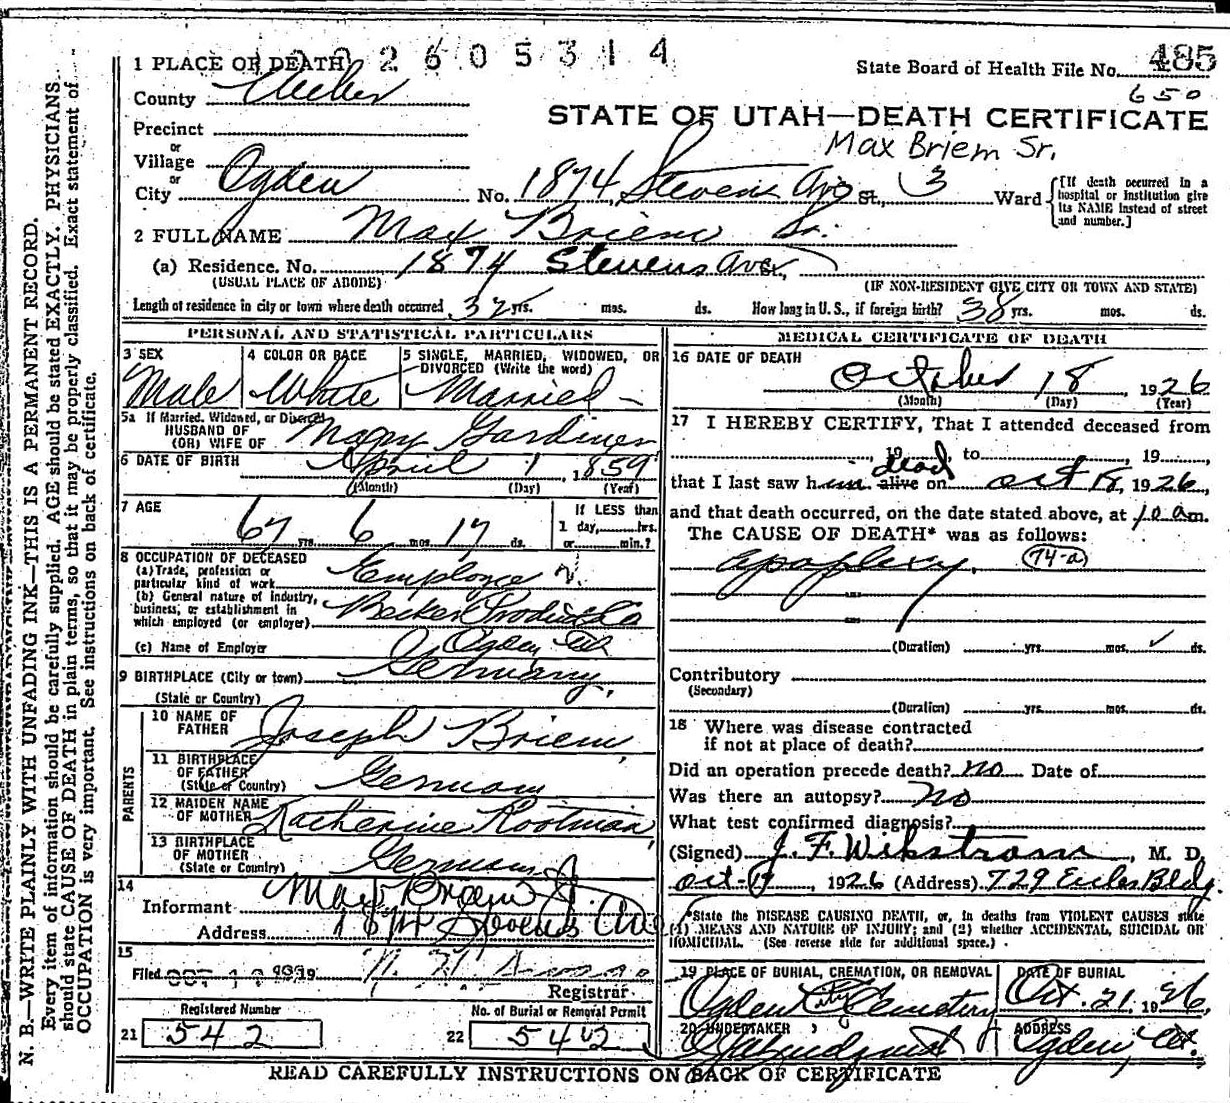 1 PLACE OF DEATH 2605314
State Board of Health File No. 485
650
County Weber
STATE OF UTAH—DEATH CERTIFICATE
Precinct
Max Briem Sr.
or
Village
or
City Ogden No. 1874 Stevens Ave St., 3 Ward
[If death occurred in a
hospital or institution give
its NAME instead of street
and number.]
2 FULL NAME Max Briem Sr.
(a) Residence. No. 1874 Stevens Ave St.,
(USUAL PLACE OF ABODE) (IF NON-RESIDENT GIVE CITY OR TOWN AND STATE)
Length of residence in city or town where death occurred 37 yrs. mos. ds. How long in U.S., if foreign birth? 38 yrs. mos. ds.
PERSONAL AND STATISTICAL PARTICULARS
3 SEX 4 COLOR OR RACE 5 SINGLE, MARRIED, WIDOWED, OR
DIVORCED (Write the word)
Male White Married
5a If Married, Widowed, or Divorced
HUSBAND OF
(OR) WIFE OF Mary Gardiner
6 DATE OF BIRTH April 1, 1859
(Month) (Day) (Year)
7 AGE If LESS than
1 day, hrs.
67 yrs. 6 mos. 17 ds. or min.?
8 OCCUPATION OF DECEASED
(a) Trade, profession or
particular kind of work Employee
(b) General nature of industry,
business, or establishment in
which employed (or employer) Becker Products Co
(c) Name of Employer Ogden Utah
9 BIRTHPLACE (City or town) Germany,
(State or Country)
PARENTS
10 NAME OF
FATHER Joseph Briem,
11 BIRTHPLACE
OF FATHER
(State or Country) Germany
12 MAIDEN NAME
OF MOTHER Katherine Rootman,
13 BIRTHPLACE
OF MOTHER
(State or Country) Germany
14
Informant Max Briem Jr.
Address 1874 Stevens Ave
15
Filed OCT 19 1926
Registrar.
Registered Number No. of Burial or Removal Permit
21 542 22 542
MEDICAL CERTIFICATE OF DEATH
16 DATE OF DEATH
October 18, 1926
(Month) (Day) (Year)
17 I HEREBY CERTIFY, That I attended deceased from
, 19 , to , 19
dead
that I last saw him alive on Oct 18, 1926,
and that death occurred, on the date stated above, at 10 am.
The CAUSE OF DEATH* was as follows:
Apoplexy. 74-a
(Duration) yrs. mos. ds.
Contributory
(Secondary)
(Duration) yrs. mos. ds.
18 Where was disease contracted
if not at place of death?
Did an operation precede death? no Date of
Was there an autopsy? no
What test confirmed diagnosis?
(Signed) J. F. Wikstrom, M. D.
Oct-19, 1926 (Address) 729 Eccles Bldg.
*State the DISEASE CAUSING DEATH, or, in deaths from VIOLENT CAUSES state
(1) MEANS AND NATURE OF INJURY; and (2) whether ACCIDENTAL, SUICIDAL OR
HOMICIDAL. (See reverse side for additional space.)
19 PLACE OF BURIAL, CREMATION, OR REMOVAL DATE OF BURIAL
Ogden City Cemetery Oct. 21, 1926
20 UNDERTAKER ADDRESS
Lindquist Ogden, Ut.
READ CAREFULLY INSTRUCTIONS ON BACK OF CERTIFICATE
N. B.—WRITE PLAINLY WITH UNFADING INK—THIS IS A PERMANENT RECORD.
Every item of information should be carefully supplied. AGE should be stated EXACTLY. PHYSICIANS
should state CAUSE OF DEATH in plain terms, so that it may be properly classified. Exact statement of
OCCUPATION is very important. See instructions on back of certificate.